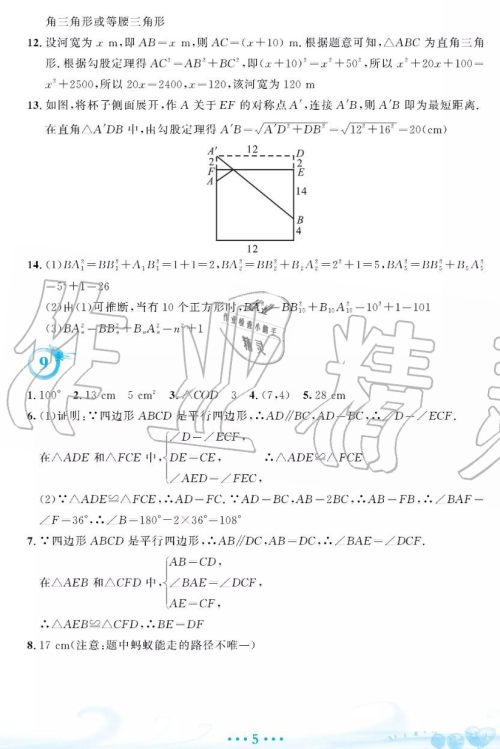 角三角形或等腰三角形
12. 设河宽为 x m,即 AB=x m,则 AC=(x+10) m. 根据题意可知,△ABC 为直角三角
形. 根据勾股定理得 AC²=AB²+BC²,即(x+10)²=x²+50²,所以 x²+20x+100=
x²+2500,所以 20x=2400,x=120,该河宽为 120 m
13. 如图,将杯子侧面展开,作 A 关于 EF 的对称点 A′,连接 A′B,则 A′B 即为最短距离.
在直角△A′DB 中,由勾股定理得 A′B=√(A′D²+DB²)=√(12²+16²)=20(cm)
A′ 12 D
2 2
F E
A 14
B
4
12
14. (1)BA₁²=BB₁²+A₁B₁²=1+1=2,BA₂²=BB₂²+B₂A₂²=2²+1=5,BA₅²=BB₅²+B₅A₅²
=5²+1=26
(2)由(1)可推断,当有 10 个正方形时,BA₁₀²=BB₁₀²+B₁₀A₁₀²=10²+1=101
(3)BAₙ²=BBₙ²+BₙAₙ²=n²+1
9
1. 100° 2. 13 cm 5 cm² 3. △COD 3 4. (7,4) 5. 28 cm
6. (1)证明:∵四边形 ABCD 是平行四边形,∴AD∥BC,AD=BC,∴∠D=∠ECF.
∠D=∠ECF,
在△ADE 和△FCE 中, DE=CE, ∴△ADE≌△FCE
∠AED=∠FEC,
(2)∵△ADE≌△FCE,∴AD=FC. ∵AD=BC,AB=2BC,∴AB=FB,∴∠BAF=
∠F=36°,∴∠B=180°-2×36°=108°
7. ∵四边形 ABCD 是平行四边形,∴AB∥DC,AB=DC,∴∠BAE=∠DCF.
AB=CD,
在△AEB 和△CFD 中, ∠BAE=∠DCF,
AE=CF,
∴△AEB≌△CFD,∴BE=DF
8. 17 cm(注意:题中蚂蚁能走的路径不唯一)
作业精灵
作业检查小助手
精灵
••• 5 •••